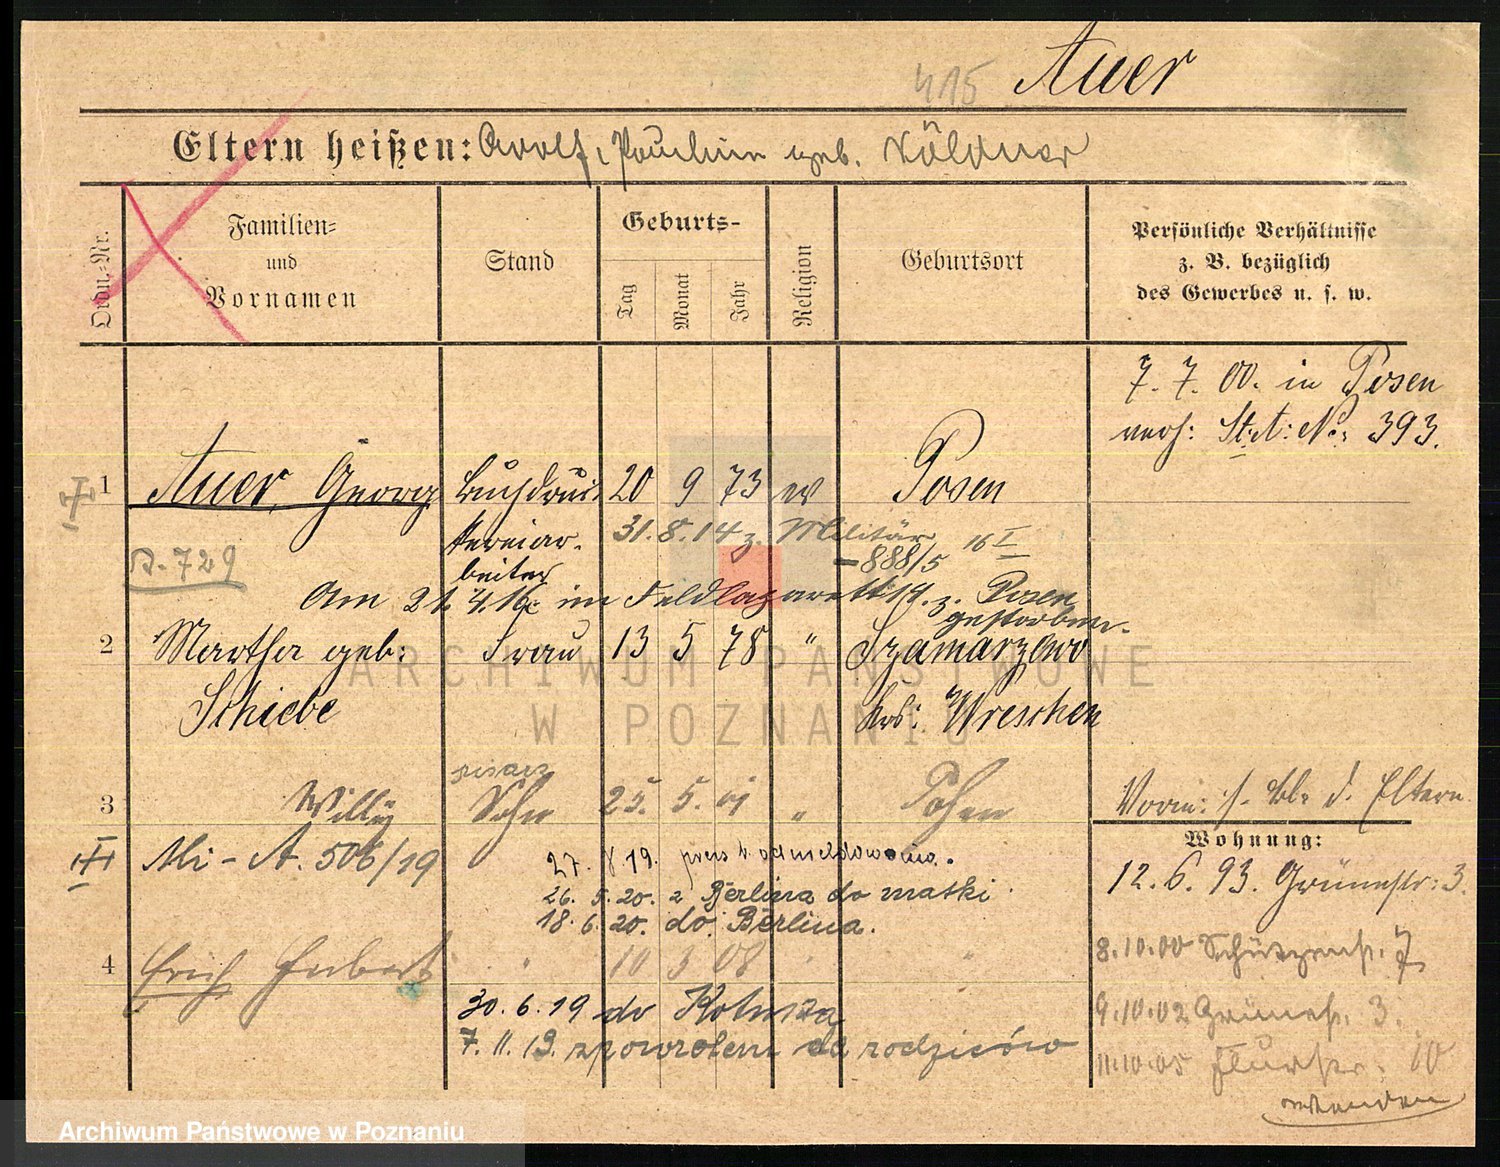 415 Auer
Eltern heißen: Adolf, Paulina geb. Köldner
Ordn.-Nr.
Familien-
und
Vornamen
Stand
Geburts-
Tag
Monat
Jahr
Religion
Geburtsort
Persönliche Verhältnisse
z. B. bezüglich
des Gewerbes u. s. w.
7. 7. 00. in Posen
verh: St. A: No: 393.
1 Auer, Georg Buchdruc- 20 9 73 ev Posen
kereiar-
beiter
31. 8. 14 z. Militär
A. 729
- 888/5 16 I
Am 21. 4. 16. im Feldlazarett z. Posen
gestorben.
2 Martha geb: Frau 13 5 78 " Szamarzewo
Schiebe Krs: Wreschen
pisarz
3 Willy Sohn 25. 5. 01 " Posen
Vorm: d. Eltern.
Wohnung:
Mi - A. 506/19
27. 8 19.
26. 5. 20. z Berlina do matki.
18. 6. 20. do Berlina.
12. 6. 93. Grünestr: 3.
4 Erich Hubert " 10 3 08 " "
8.10.00 Schützenstr. 7
30. 6. 19 do
7. 11. 19. zpowrotem do rodziców
9.10.02 Grünestr. 3.
11.10.05 Flurstr. 10
wenden
ARCHIWUM PAŃSTWOWE
W POZNANIU
Archiwum Państwowe w Poznaniu